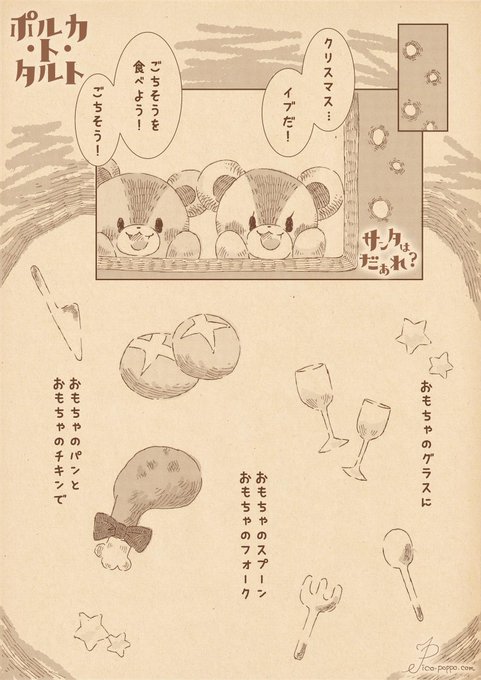 ポルカ
・ト・
タルト
クリスマス…
イブだ!
ごちそうを
食べよう!
ごちそう!
サンタは
だぁれ?
おもちゃのグラスに
おもちゃのスプーン
おもちゃのフォーク
おもちゃのパンと
おもちゃのチキンで
Pico-poppo.com